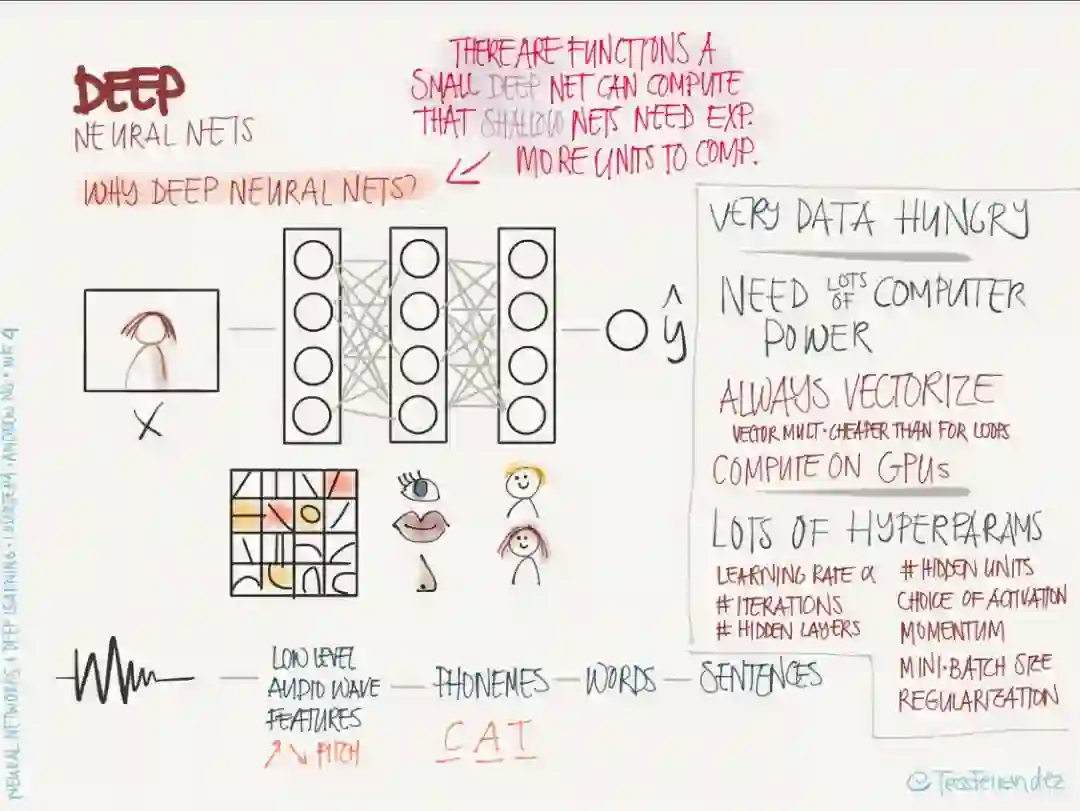 DEEP
NEURAL NETS
THERE ARE FUNCTIONS A
SMALL DEEP NET CAN COMPUTE
THAT SHALLOW NETS NEED EXP.
MORE UNITS TO COMP.
WHY DEEP NEURAL NETS?
X
ŷ
VERY DATA HUNGRY
NEED LOTS OF COMPUTER
POWER
ALWAYS VECTORIZE
VECTOR MULT. CHEAPER THAN FOR LOOPS
COMPUTE ON GPUs
LOTS OF HYPERPARAMS
LEARNING RATE α
# ITERATIONS
# HIDDEN LAYERS
# HIDDEN UNITS
CHOICE OF ACTIVATION
MOMENTUM
MINI-BATCH SIZE
REGULARIZATION
LOW LEVEL
AUDIO WAVE
FEATURES
↗↘ PITCH
PHONEMES
C A T
WORDS
SENTENCES
NEURAL NETWORKS & DEEP LEARNING · COURSERA · ANDREW NG · WK 4
@TessFernandez